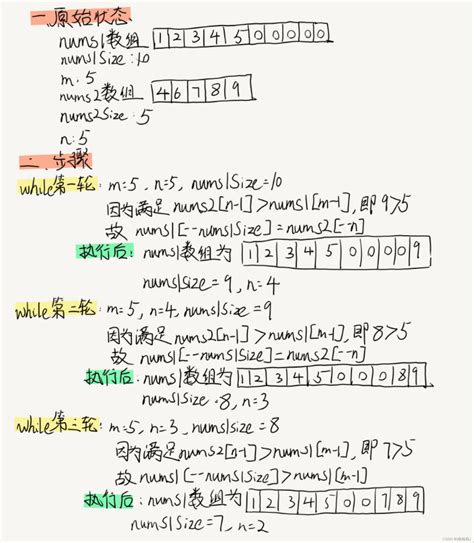 一.原始状态
nums1数组 1 2 3 4 5 0 0 0 0 0
nums1Size:10
m.5
nums2数组 4 6 7 8 9
nums2Size.5
n:5
二.步骤
while第一轮: m=5, n=5, nums1Size=10
因为满足nums2[n-1]>nums1[m-1],即9>5
故 nums1[--nums1Size]=nums2[--n]
执行后: nums1数组为 1 2 3 4 5 0 0 0 0 9
nums1Size=9, n=4
while第二轮: m=5, n=4, nums1Size=9
因为满足nums2[n-1]>nums1[m-1],即8>5
故 nums1[--nums1Size]=nums2[--n]
执行后: nums1数组为 1 2 3 4 5 0 0 0 8 9
nums1Size.8, n=3
while第三轮: m=5, n=3, nums1Size=8
因为满足nums2[n-1]>nums1[m-1],即7>5
故nums1[--nums1Size]>nums1[m-1]
执行后: nums1数组为 1 2 3 4 5 0 0 7 8 9
nums1Size=7, n=2